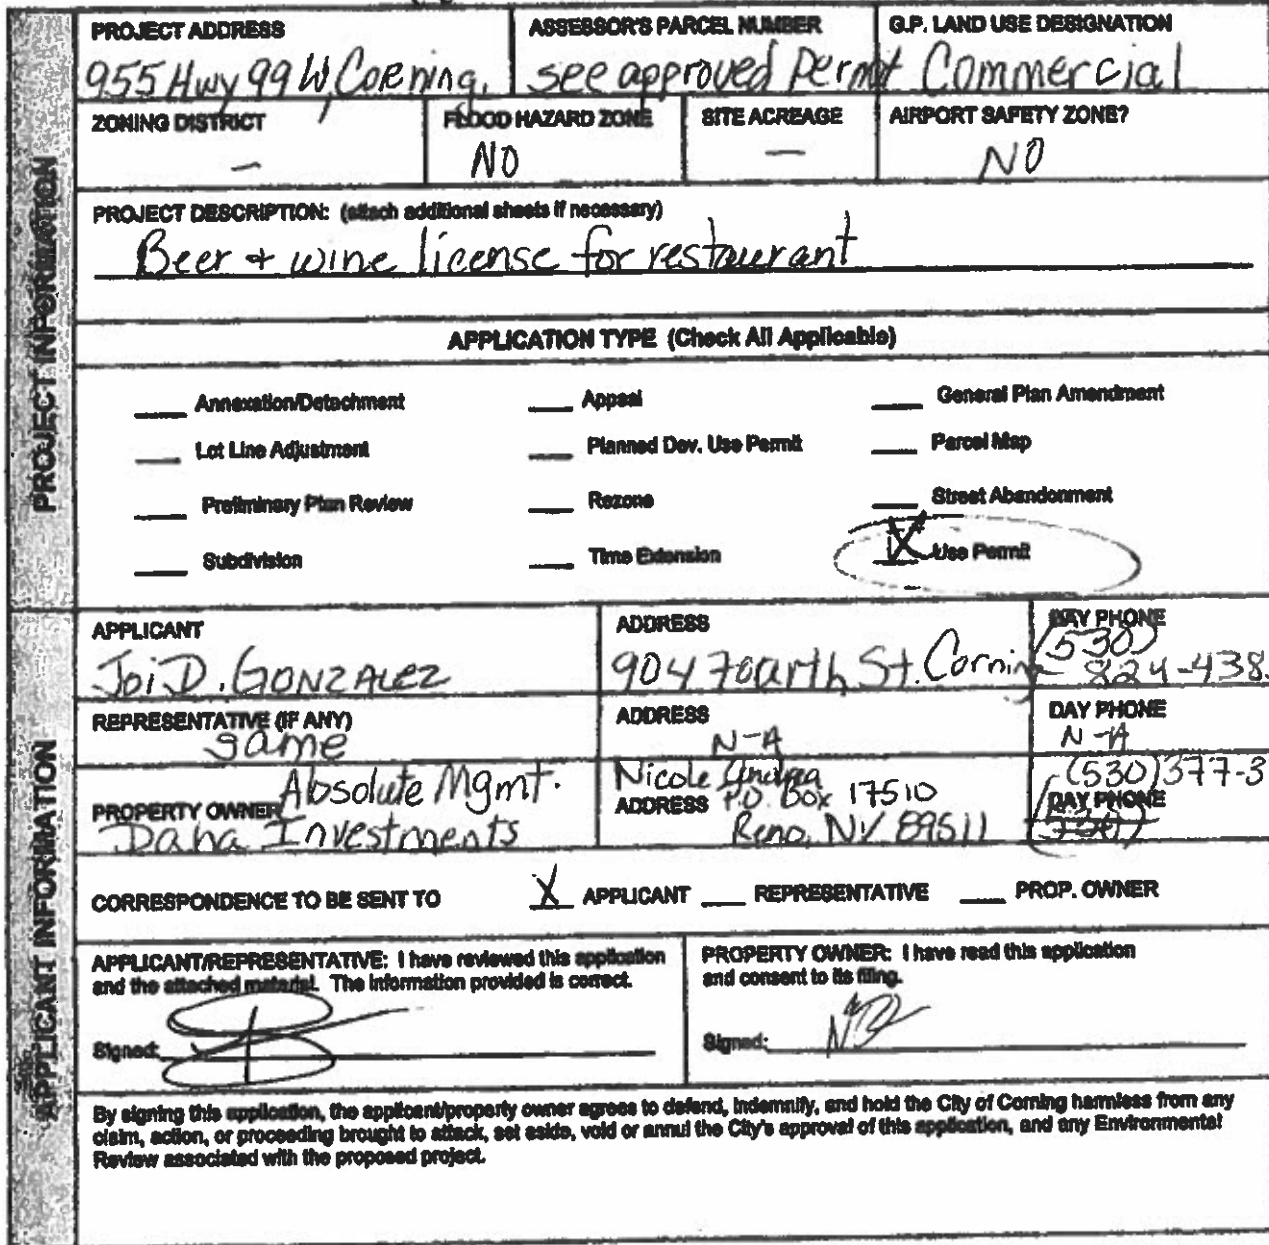 PROJECT INFORMATION
PROJECT ADDRESS
955 Hwy 99 W, Corning,
ASSESSOR'S PARCEL NUMBER
see approved Permit
G.P. LAND USE DESIGNATION
Commercial
ZONING DISTRICT
—
FLOOD HAZARD ZONE
NO
SITE ACREAGE
—
AIRPORT SAFETY ZONE?
NO
PROJECT DESCRIPTION: (attach additional sheets if necessary)
Beer + wine license for restaurant
APPLICATION TYPE (Check All Applicable)
___ Annexation/Detachment ___ Appeal ___ General Plan Amendment
___ Lot Line Adjustment ___ Planned Dev. Use Permit ___ Parcel Map
___ Preliminary Plan Review ___ Rezone ___ Street Abandonment
___ Subdivision ___ Time Extension X Use Permit
APPLICANT INFORMATION
APPLICANT
Joi D. GONZALEZ
ADDRESS
904 Fourth St. Corning
DAY PHONE
(530)
824-438
REPRESENTATIVE (IF ANY)
same
ADDRESS
N-A
DAY PHONE
N-A
Absolute Mgmt.
PROPERTY OWNER
Dana Investments
Nicole
ADDRESS P.O. Box 17510
Reno, NV 89511
(530)377-3
DAY PHONE
CORRESPONDENCE TO BE SENT TO X APPLICANT ___ REPRESENTATIVE ___ PROP. OWNER
APPLICANT/REPRESENTATIVE: I have reviewed this application
and the attached material. The information provided is correct.
Signed:
PROPERTY OWNER: I have read this application
and consent to its filing.
Signed:
By signing this application, the applicant/property owner agrees to defend, indemnify, and hold the City of Corning harmless from any
claim, action, or proceeding brought to attack, set aside, void or annul the City's approval of this application, and any Environmental
Review associated with the proposed project.